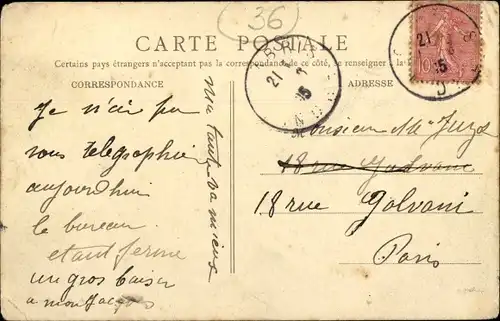 36
CARTE POSTALE
Certains pays étrangers n'acceptant pas la correspondance de ce côté, se renseigner à la
CORRESPONDANCE
ADRESSE
Je n'ai pu
vous télégraphier
aujourd'hui
le bureau
étant fermé
un gros baiser
a mon
ma tante va mieux
Monsieur
18 rue Galvani
18 rue Galvani
Paris
21
15
21
15
10